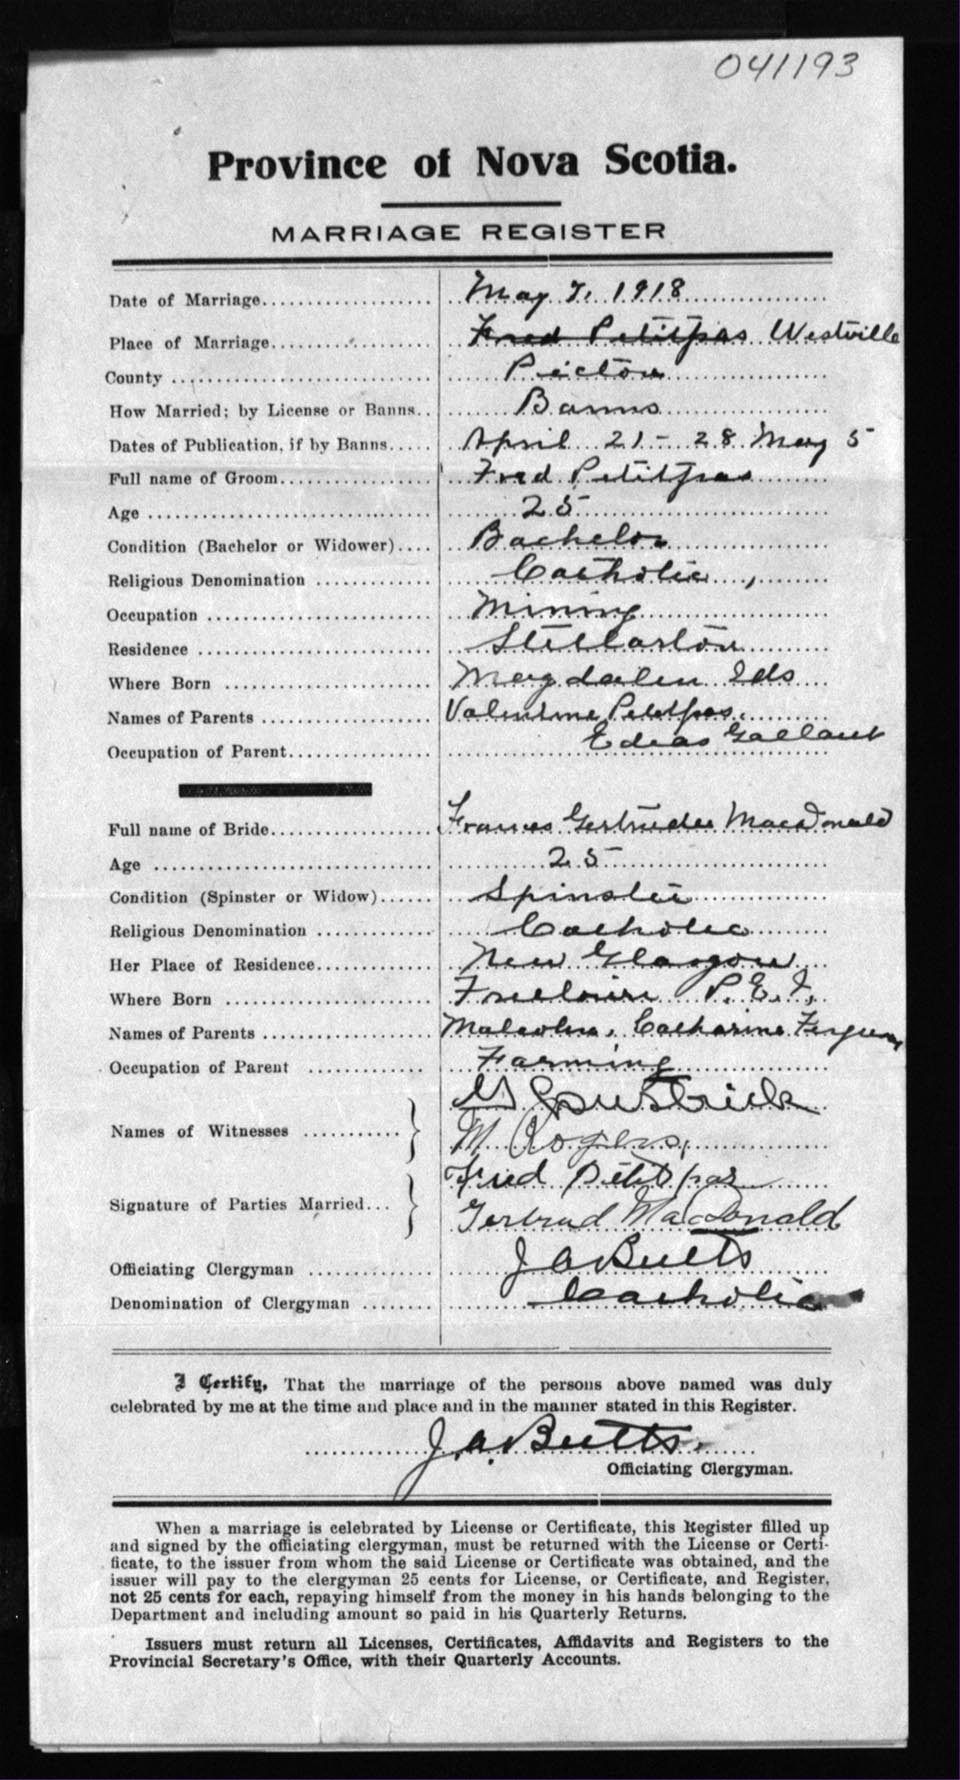 041193
Province of Nova Scotia.
MARRIAGE REGISTER
Date of Marriage May 7, 1918
Place of Marriage Fred Petitpas Westville
County Pictou
How Married; by License or Banns Banns
Dates of Publication, if by Banns April 21 - 28 May 5
Full name of Groom Fred Petitpas
Age 25
Condition (Bachelor or Widower) Bachelor
Religious Denomination Catholic
Occupation Mining
Residence Stellarton
Where Born Magdalen Ids
Names of Parents Valentine Petitpas,
Occupation of Parent Gallant
Full name of Bride Frances Gertrude MacDonald
Age 25
Condition (Spinster or Widow) Spinster
Religious Denomination Catholic
Her Place of Residence New Glasgow
Where Born P. E. I,
Names of Parents Malcolm, Catharine Ferguson
Occupation of Parent Farming
Names of Witnesses
M Rogers,
Signature of Parties Married Fred Petitpas
Gertrud MacDonald
Officiating Clergyman J A Butts
Denomination of Clergyman Catholic
I Certify, That the marriage of the persons above named was duly
celebrated by me at the time and place and in the manner stated in this Register.
J. A. Butts.
Officiating Clergyman.
When a marriage is celebrated by License or Certificate, this Register filled up
and signed by the officiating clergyman, must be returned with the License or Certi-
ficate, to the issuer from whom the said License or Certificate was obtained, and the
issuer will pay to the clergyman 25 cents for License, or Certificate, and Register,
not 25 cents for each, repaying himself from the money in his hands belonging to the
Department and including amount so paid in his Quarterly Returns.
Issuers must return all Licenses, Certificates, Affidavits and Registers to the
Provincial Secretary's Office, with their Quarterly Accounts.